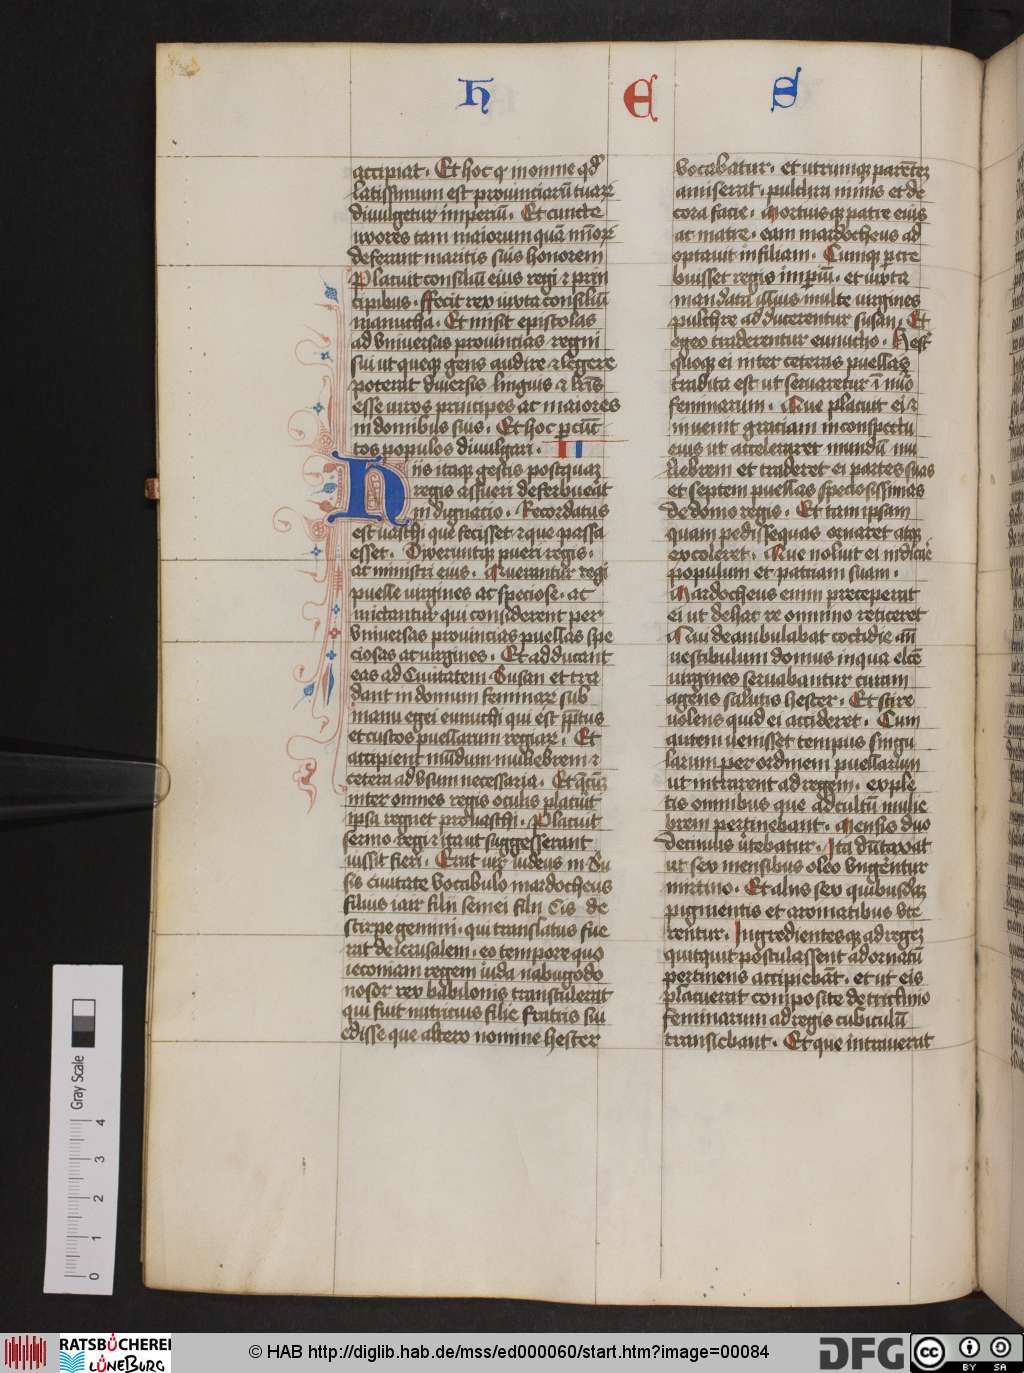 h E S
accipiat. Et hoc q̄ in omne qd̄
latissimum est prouinciarū tuarꝝ
diuulgetur imperiū. Et cuncte
uxores tam maiorum quā mīorꝝ
deferant maritis suis honorem
Placuit consiliū eius regi ⁊ prin
cipibus. ffecit rex iuxta consiliū
manucha. Et misit epistolas
ad vniuersas prouincias regni
sui ut queqꝫ gens audire ⁊ legere
poterat diuersis linguis ⁊ lr̄is
esse uiros principes ac maiores
in domibus suis. Et hoc ꝑ cūc
tos populos diuulgari. II
Hiis itaqꝫ gestis postquaꝫ
regis assueri deferbuerat
indignatio. Recordatus
est uasthi que fecisset ⁊ que passa
esset. Dixeruntqꝫ pueri regis.
ac ministri eius. Querantur regi
puelle uirgines ac speciose. ac
mictantur qui considerent per
vniuersas prouincias puellas spe
ciosas ac uirgines. Et adducant
eas ad Ciuitatem Susan et tra
dant in domum feminarꝝ sub
manu egei eunuchi qui est p̄pītus
et custos puellarum regiarꝝ. Et
accipient mūdum muliebrem ⁊
cetera ad vsum necessaria. Et q̄cūqꝫ
inter omnes regis oculis placuit
ipsa regnet pro uasthi. Placuit
sermo regi ⁊ ita ut suggesserant
iussit fieri. Erat uir iudeus in Su
sis ciuitate vocabulo mardocheus
filius iair filii semei filii Cis de
stirpe gemini. qui translatus fue
rat de ierusalem. eo tempore quo
ieconiam regem iuda nabugodo
nosor rex babilonis transtulerat
qui fuit nutricius filie fratris sui
edisse que altero nomine hester
vocabatur. et utrumqꝫ parētēꝫ
amiserat. pulchra nimis et de
cora facie. Mortuisqꝫ patre eius
ac matre. eam mardocheus ad
optauit in filiam. Cumqꝫ ꝑcre
buisset regis imꝑiū. et iuxta
mandata illius multe uirgines
pulchre adducerentur susan. Et
egeo traderentur eunucho. Hest̄
quoqꝫ ei inter ceteras puellas
tradita est ut seruaretur ī nūo
feminarum. Que placuit ei ⁊
inuenit gratiam in conspectu
eius ut acceleraret mundū mu
liebrem et traderet ei partes suas
et septem puellas speciosissimas
de domo regis. Et tam ipsam
quam pedissequas ornaret atqꝫ
excoleret. Que noluit ei īdicare
populum et patriam suam.
Mardocheus enim preceperat
ei ut de hac re omnino reticeret
Qui deambulabat cottidie añ
uestibulum domus in qua elcē
uirgines seruabantur curam
agens salutis hester. Et scire
uolens quid ei accideret. Cum
autem uenisset tempus singu
larum per ordinem puellarum
ut intrarent ad regem. exple
tis omnibus que ad cultū mulie
brem pertinebant. Mensis duo
decimus uertebatur. Ita dūtaxat
ut sex mensibus oleo vngerentur
mirtino. Et aliis sex quibusdaꝫ
pigmentis et aromatibus vte
rentur. Ingredientesqꝫ ad regeꝫ
quitquit postulassent ad ornatū
pertinens accipiebāt. et ut eis
placuerat composite de triclinio
feminarum ad regis cubiculū
transiebant. Et que intrauerat
Gray Scale
0 1 2 3 4
RATSBÜCHEREI
LÜNEBURG
© HAB http://diglib.hab.de/mss/ed000060/start.htm?image=00084
DFG
cc BY SA